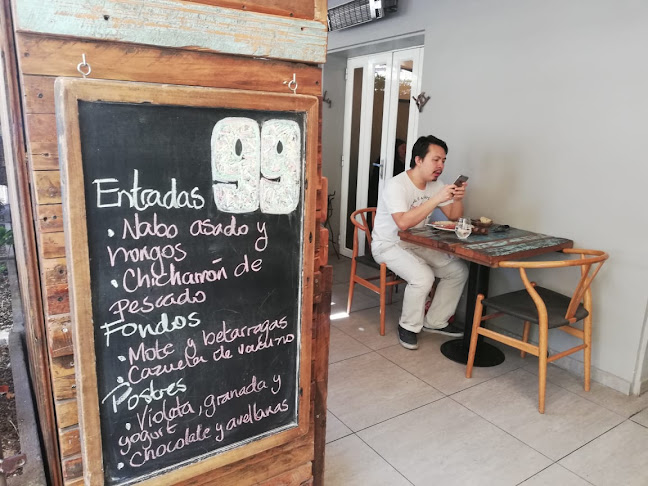 99
Entradas
• Nabo asado y
hongos
• Chicharrón de
pescado
Fondos
• Mote y betarragas
• Cazuela de vacuno
Postres
• Violeta, granada y
yogurt
• Chocolate y avellanas